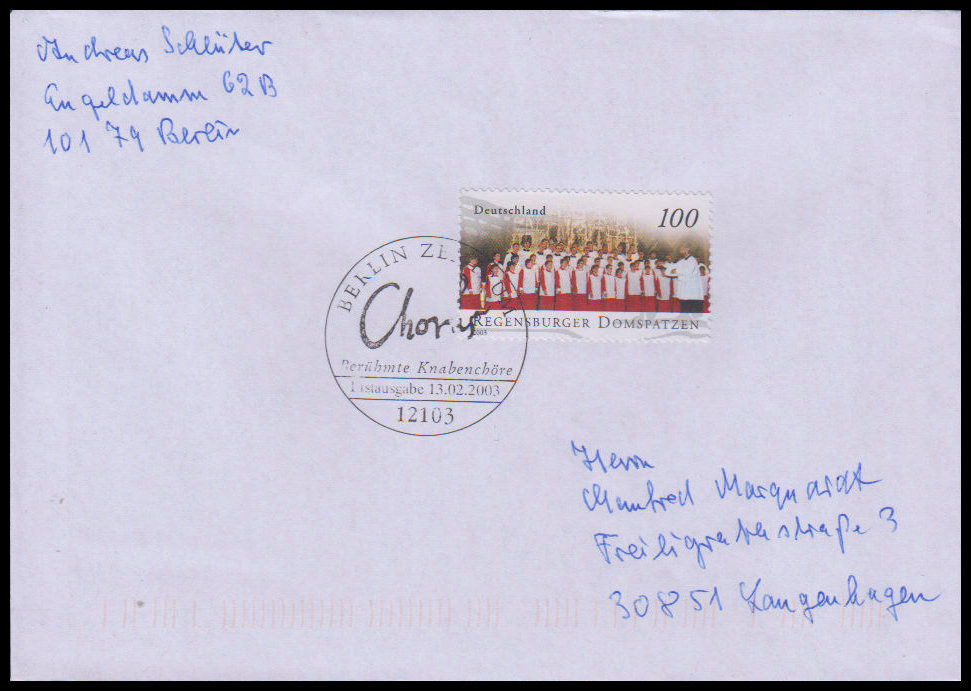 Andreas Schlüter
Engeldamm 62B
10179 Berlin
Deutschland
100
REGENSBURGER DOMSPATZEN
2003
BERLIN
Chorus
Berühmte Knabenchöre
Erstausgabe 13.02.2003
12103
Herrn
Manfred Marquardt
Freiligrathstraße 3
30851 Langenhagen